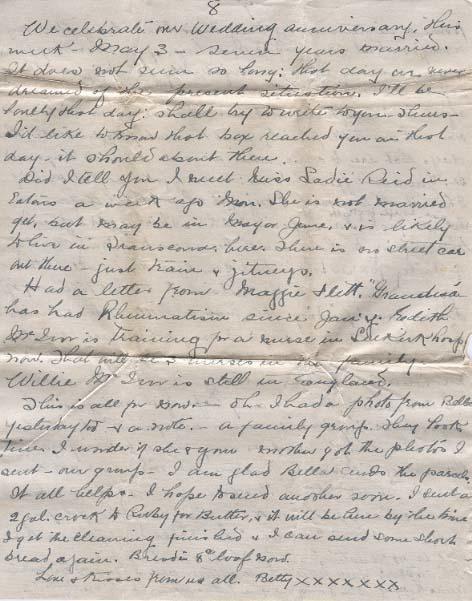 8
We celebrate our Wedding anniversary this
week - May 3 - seven years married.
It does not seem so long: that day we never
dreamed of the present situation. I'll be
lonely that day: shall try to write to you. Thurs-
I'd like to know that box reached you on that
day - it should about there.
Did I tell you I meet Miss Sadie Reid in
Eatons a week ago Mon. She is not married
yet, but may be in May or June, & is likely
to live in Transcona, here. There is no street car
out there - just train & jitneys.
Had a letter from Maggie Flett. "Grandma"
has had Rheumatism since Jan'y. Edith
is Training for a nurse in Selkirk hosp
now. That will be nurses in the family.
Willie is still in England.
This is all for now. - Oh - I had a photo from Bella
yesterday & a note. - a family group. They look
fine. I wonder if she & your mother got the photos I
sent - our group - I am glad Bella sends the parcels.
It all helps - I hope to send another soon. I sent a
2 gal. crock to for Butter, & it will be here by the time
I get the cleaning finished & I can send some short
bread again. Bread is 8¢ loaf now.
Love & Kisses from us all. Betty xxxxxxx